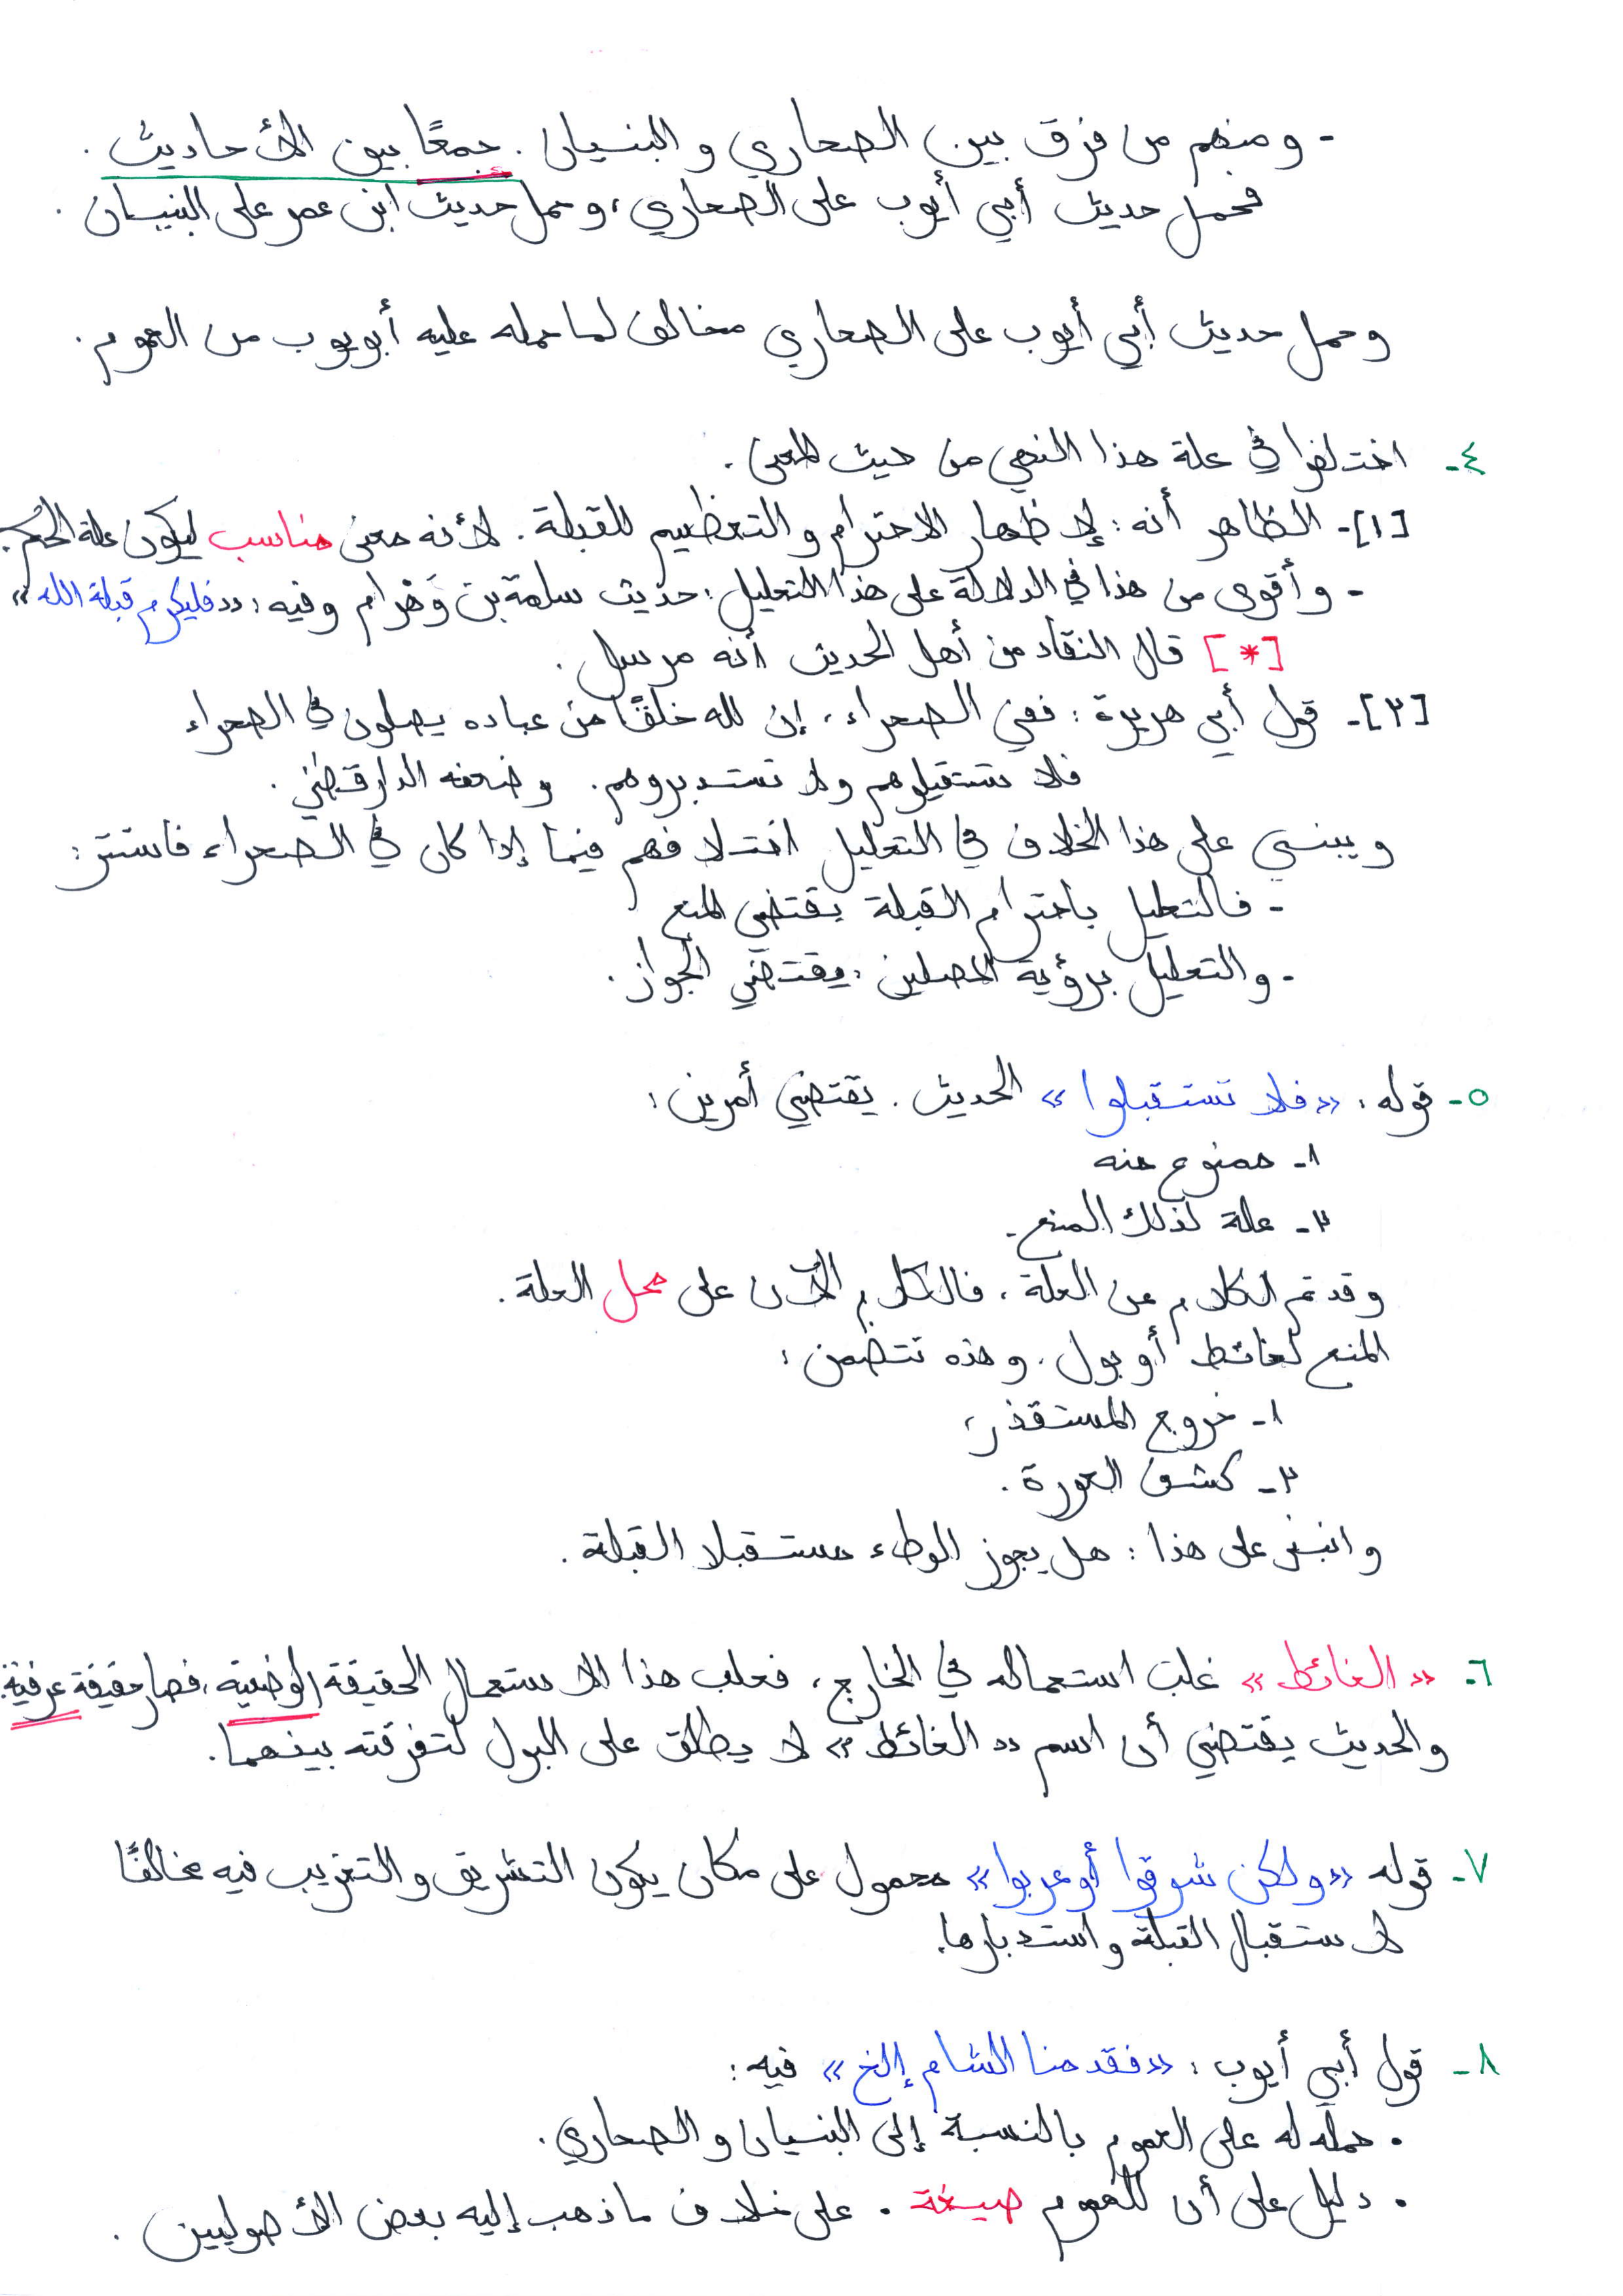 - ومنهم من فرق بين الصحاري والبنيان. جمعًا بين الأحاديث.
فحمل حديث أبي أيوب على الصحاري، وحمل حديث ابن عمر على البنيان.
وحمل حديث أبي أيوب على الصحاري مخالف لما حمله عليه أبويوب من العموم.
٤- اختلفوا في علة هذا النهي من حيث المعنى.
[١]- الظاهر أنه: لإظهار الاحترام والتعظيم للقبلة. لأنه معنى مناسب ليكون علة الحكم.
- وأقوى من هذا في الدلالة على هذا التعليل: حديث سلمة بن وَهْرام وفيه: «فليكرم قبلة الله»
[*] قال النقاد من أهل الحديث أنه مرسل.
[٢]- قول أبي هريرة: ففي الصحراء، إن لله خلقًا من عباده يصلون في الصحراء
فلا تستقبلوهم ولا تستدبروهم. وضعفه الدارقطني.
وينبني على هذا الخلاف في التعليل اختلافهم فيما إذا كان في الصحراء فاستتر:
- فالتعليل باحترام القبلة يقتضي المنع
- والتعليل برؤية المصلين: يقتضي الجواز.
٥- قوله: «فلا تستقبلوا» الحديث. يقتضي أمرين:
١- ممنوع منه
٢- علة لذلك المنع.
وقد تم الكلام عن العلة، فالكلام الآن على محل العلة.
المنع لغائط أو بول، وهذه تتضمن:
١- خروج المستقذر،
٢- كشف العورة.
وانبنى على هذا: هل يجوز الوطء مستقبلا القبلة.
٦- «الغائط» غلب استعماله في الخارج، فغلب هذا الاستعمال الحقيقة الوضعية، فصار حقيقة عرفية.
والحديث يقتضي أن اسم «الغائط» لا يطلق على البول لتفرقته بينهما.
٧- قوله «ولكن شرقوا أو غربوا» محمول على مكان يكون التشريق والتغريب فيه مخالفًا
لاستقبال القبلة واستدبارها.
٨- قول أبي أيوب: «فقدمنا الشام إلخ» فيه:
• حمله له على العموم بالنسبة إلى البنيان والصحاري.
• دليل على أن للعموم صيغة. على خلاف ما ذهب إليه بعض الأصوليين.